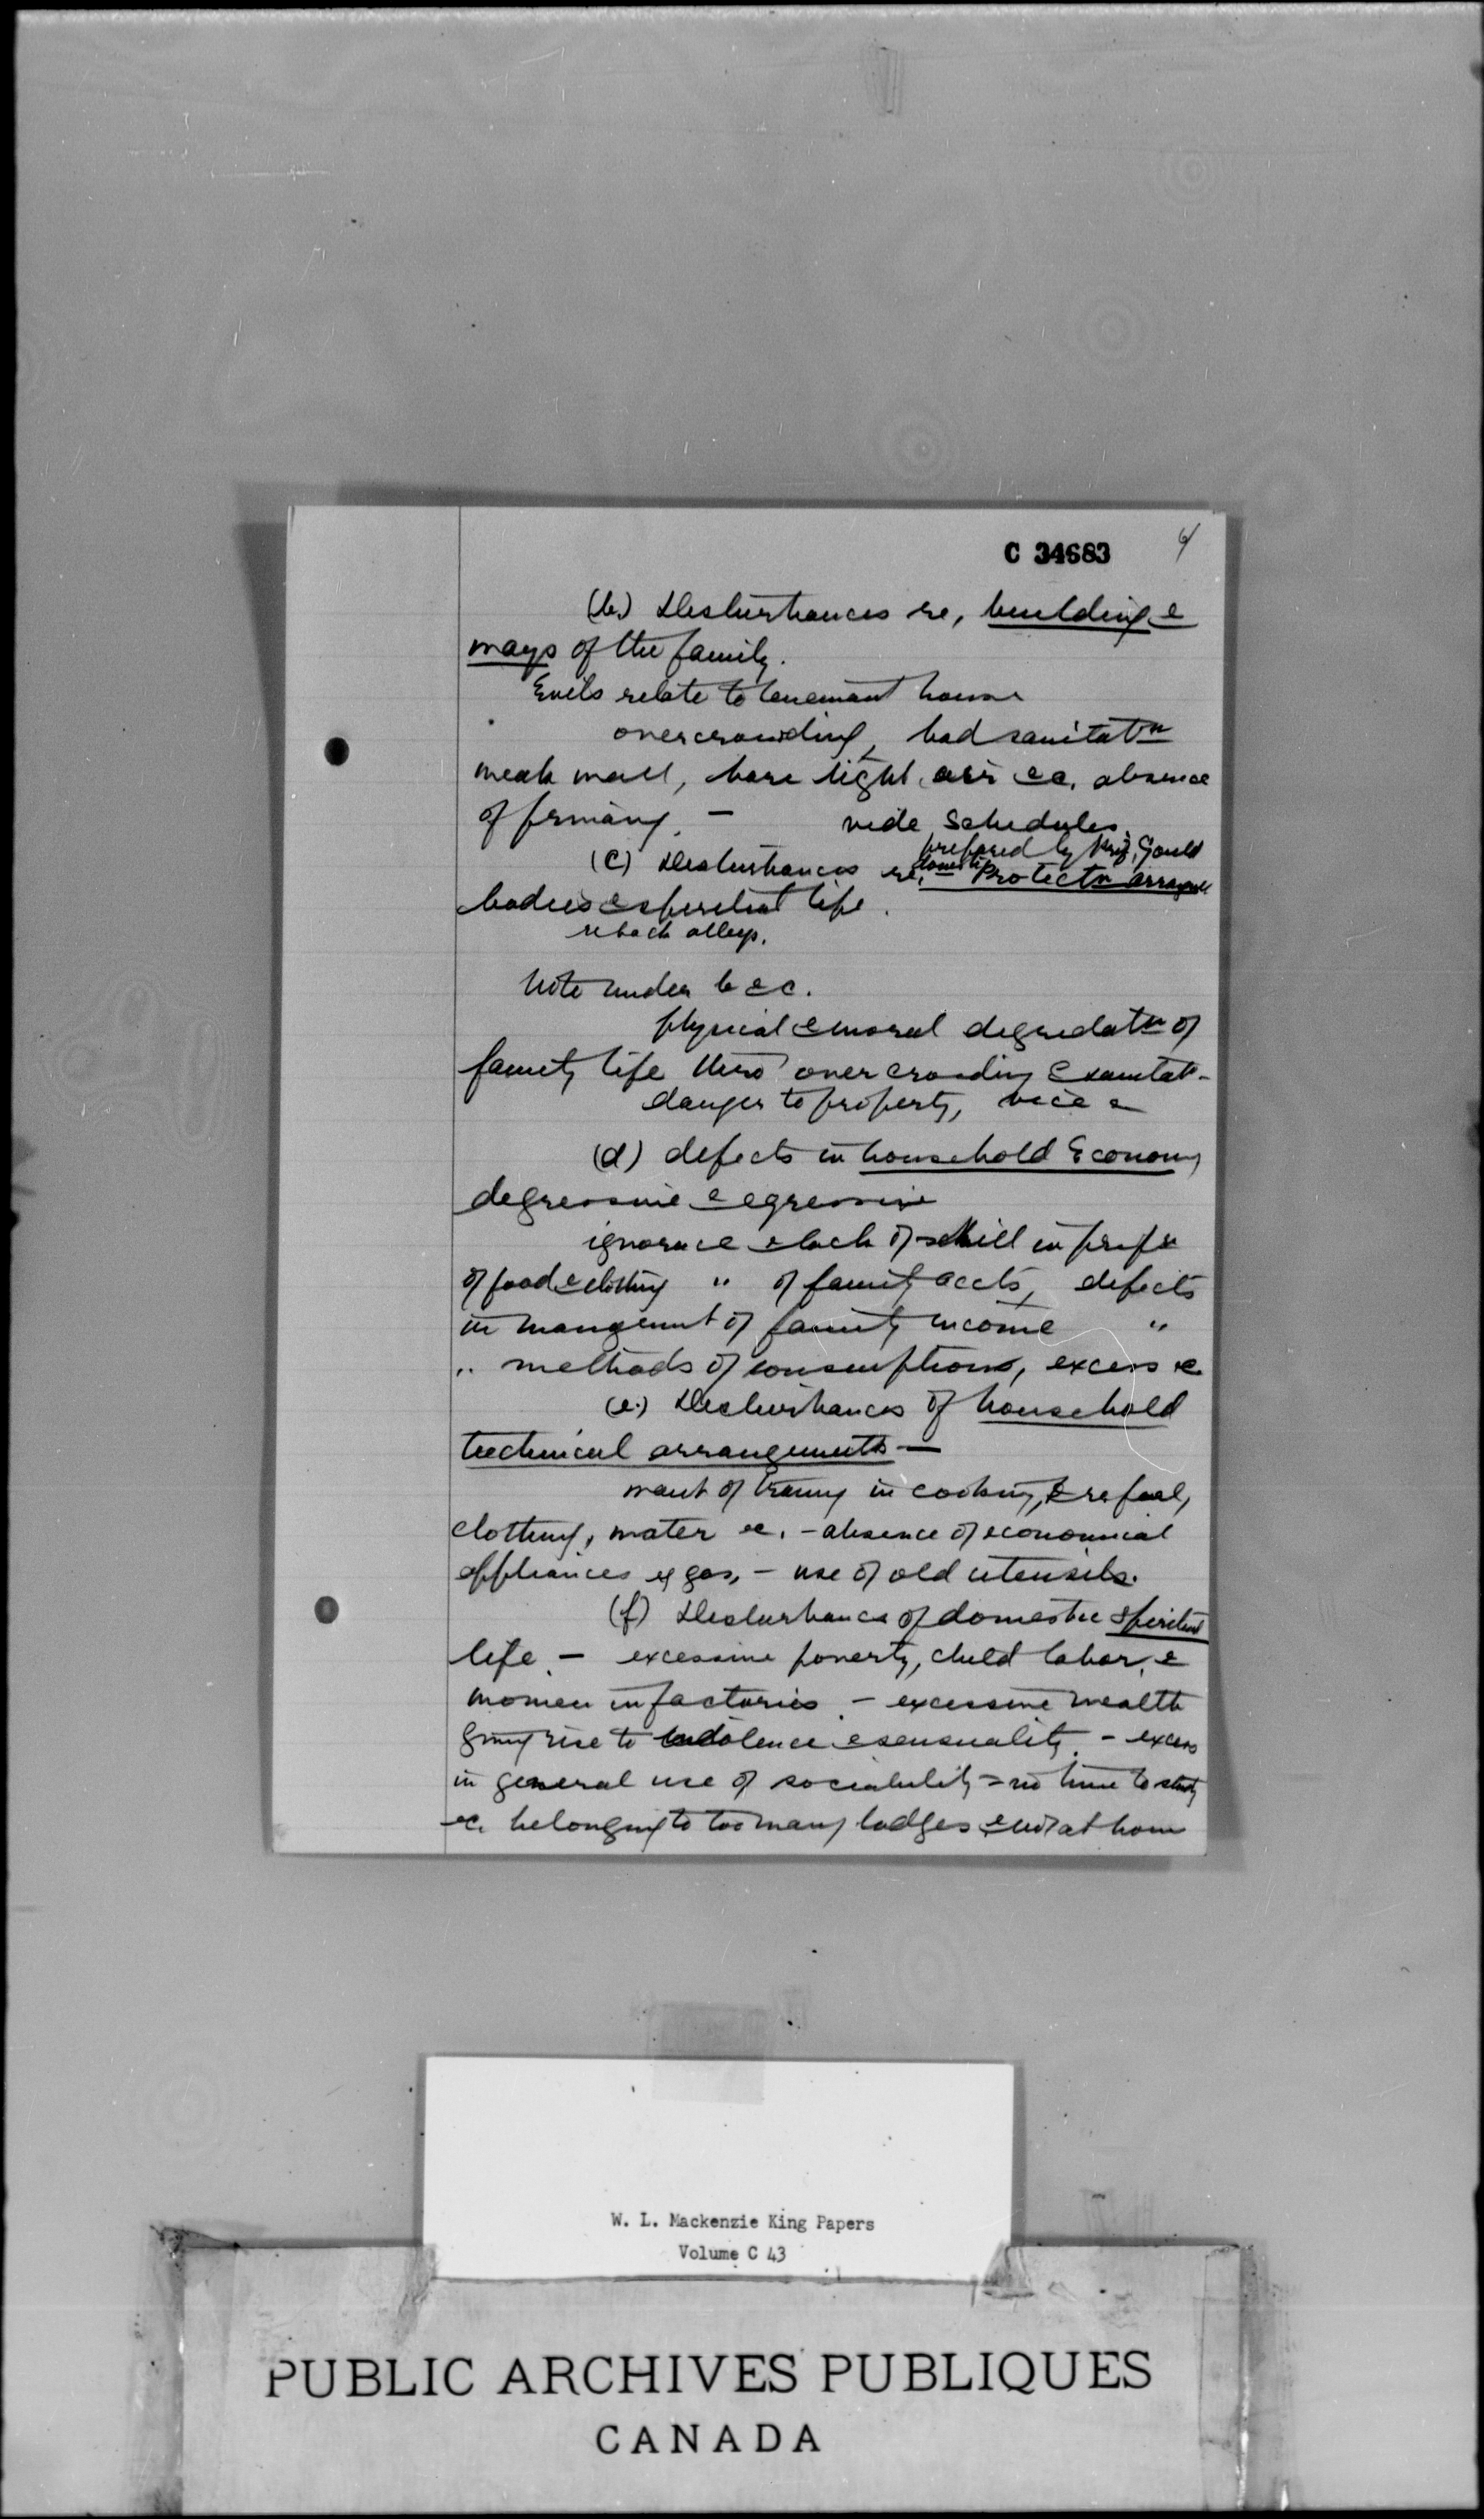 C 34683
(b.) Disturbances re, building &
ways of the family.
Evils relate to tenement house
overcrowding, bad sanitatn
weak wall, bare light, air &c. absence
of privacy. — vide Schedules.
prepared by Prof. Gould
(C) Disturbances re, domestic Protectn
bodies & spiritual life.
re back alleys.
Note under b & c.
physical & moral degredatn of
family life thro' over crowding & sanitat-
danger to property, vice &
(d) defects in household Economy
degressive & egressive
ignorance & lack of skill in
of food & clothing " of family accts, defects
in mangemnt of family income "
" methods of consumptions, excess &c
(e.) Disturbances of household
technical arrangements —
want of traing in cooking, & re fuel,
clothing, water &c. - absence of economical
appliances eg gas, - use of old utensils.
(f) Disturbance of domestic spiritual
life. — excessive poverty, child labor, &
women in factories. - excessive wealth
giving rise to indolence & sensuality. - excess
in general use of sociability = no time to study
&c. belonging to too many lodges & not at home
W. L. Mackenzie King Papers
Volume C 43
PUBLIC ARCHIVES PUBLIQUES
CANADA